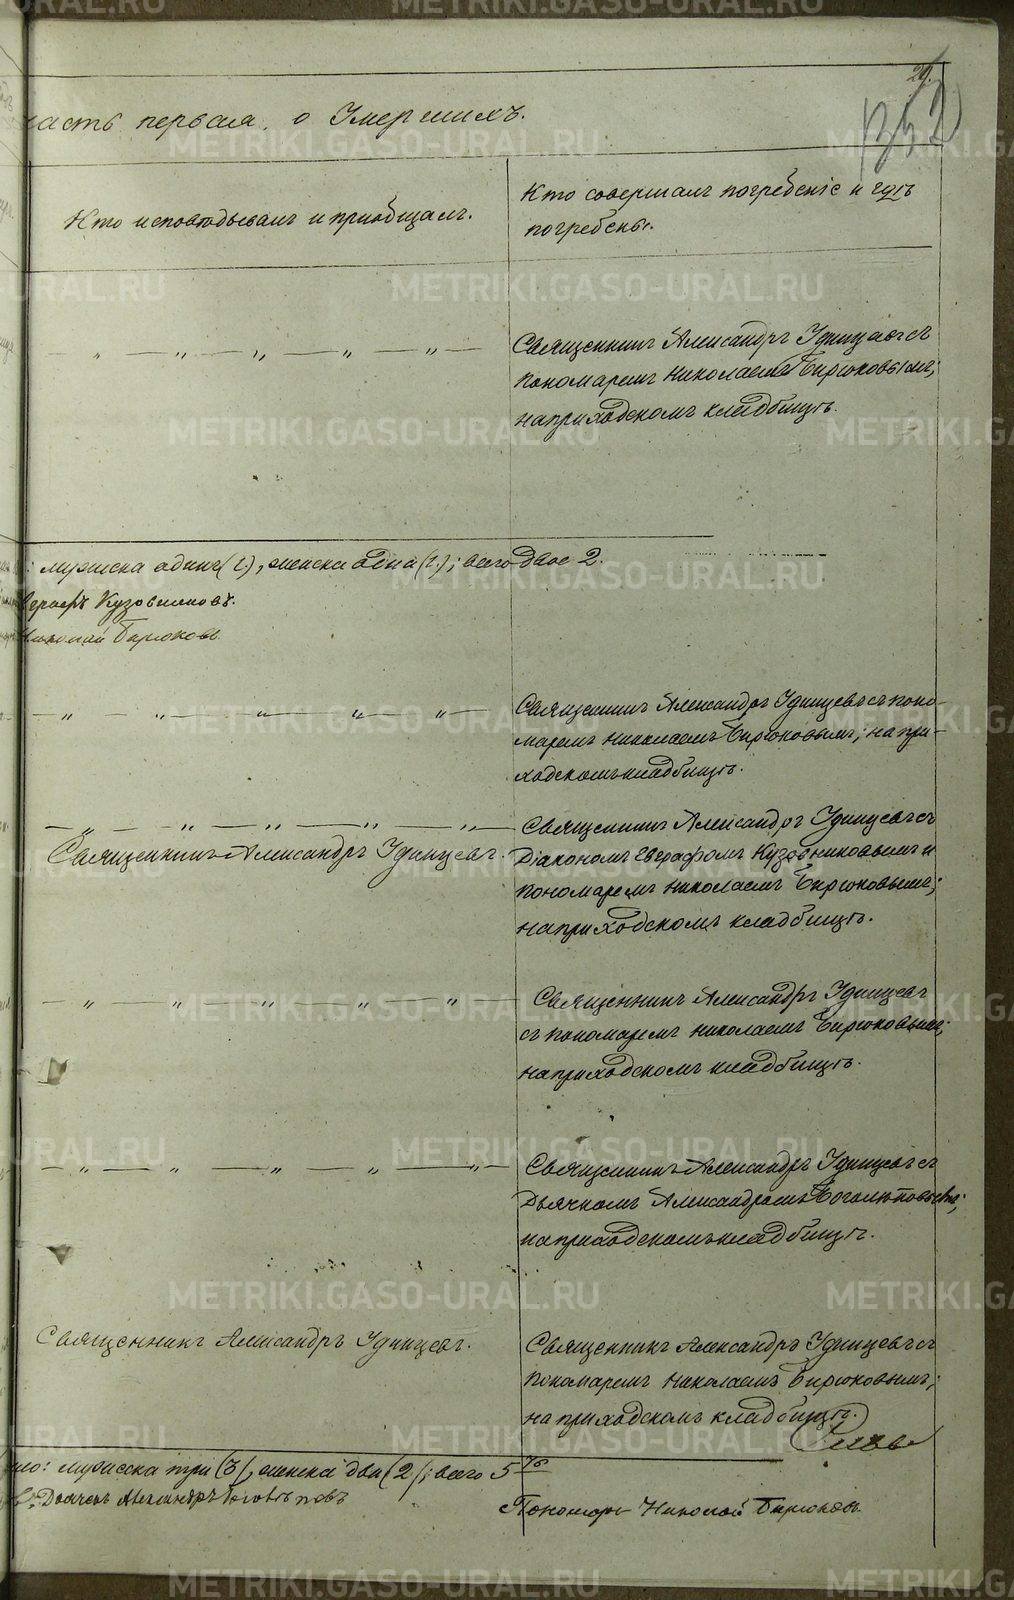 29.
352
часть первая, о Умершихъ.
Кто исповѣдывалъ и пріобщалъ.
Кто совершалъ погребеніе и гдѣ
погребены.
Священникъ Александръ Удинцевъ съ
Пономаремъ Николаемъ Бирюковымъ;
на приходскомъ кладбищѣ.
: мужеска одинъ (1.), женска одна (1.); всего двое 2.
Кузовниковъ.
Николай Бирюковъ
Священникъ Александръ Удинцевъ съ поно-
маремъ Николаемъ Бирюковымъ; на при-
ходскомъ кладбищѣ.
Священникъ Александръ Удинцевъ.
Священникъ Александръ Удинцевъ съ
Діакономъ Евграфомъ Кузовниковымъ и
Пономаремъ Николаемъ Бирюковымъ;
на приходскомъ кладбищѣ.
Священникъ Александръ Удинцевъ
съ Пономаремъ Николаемъ Бирюковымъ;
на приходскомъ кладбищѣ.
Священникъ Александръ Удинцевъ съ
Дьячкомъ Александромъ Боголѣповымъ;
на приходскомъ кладбищѣ.
Священникъ Александръ Удинцевъ.
Священникъ Александръ Удинцевъ съ
Пономаремъ Николаемъ Бирюковымъ;
на приходскомъ кладбищѣ.
мужеска три (3), женска два (2); всего 5
Дьячекъ Александръ Боголѣповъ
Пономарь Николай Бирюковъ.
METRIKI.GASO-URAL.RU